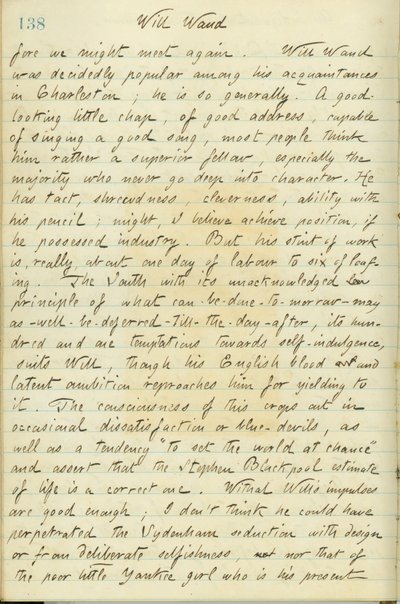 138 Will Waud
fore we might meet again. Will Waud
was decidedly popular among his acquaintances
in Charleston; he is so generally. A good-
looking little chap, of good address, capable
of singing a good song, most people think
him rather a superior fellow, especially the
majority who never go deep into character. He
has tact, shrewdness, cleverness, ability with
his pencil; might, I believe achieve position, if
he possessed industry. But his stint of work
is, really, about one day of labour to six of loaf-
ing. The South with its unacknowledged
principle of what can-be-done-to-morrow-may
as-well-be-deferred-till-the-day-after, its hun-
dred and one temptations towards self-indulgence,
suits Will, though his English blood and
latent ambition reproaches him for yielding to
it. The consciousness of this crops out in
occasional dissatisfaction or blue-devils, as
well as a tendency "to set the world at chance"
and assert that the Stephen Blackpool estimate
of life is a correct one. Withal Will's impulses
are good enough; I don't think he could have
perpetrated the Sydenham seduction with design
or from deliberate selfishness, nor that of
the poor little Yankee girl who is his present